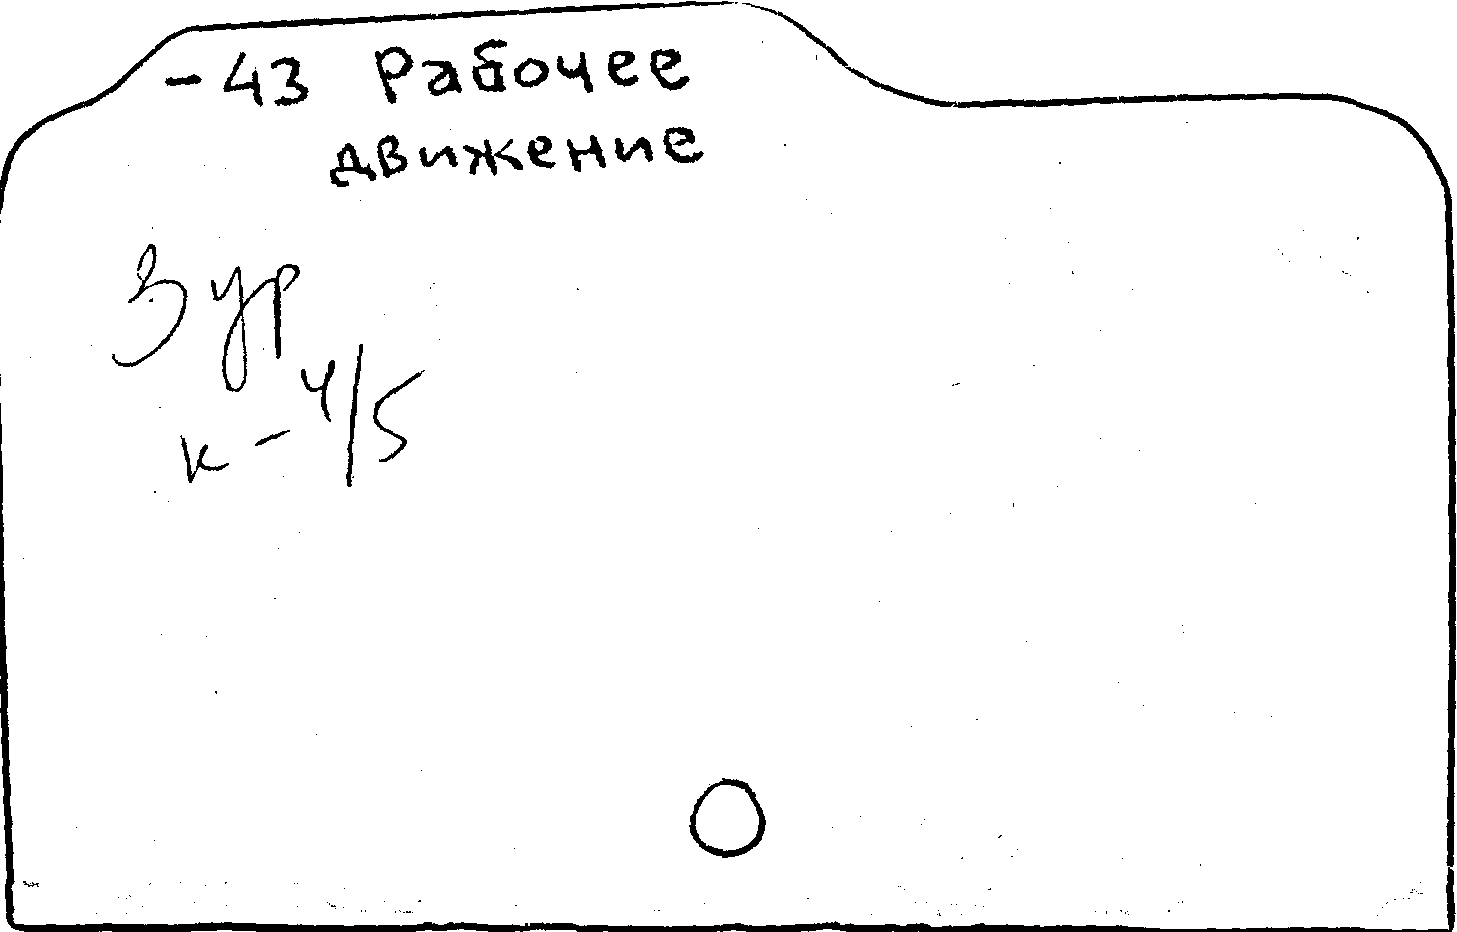 -43 Рабочее
движение
3 ур
к-4/5